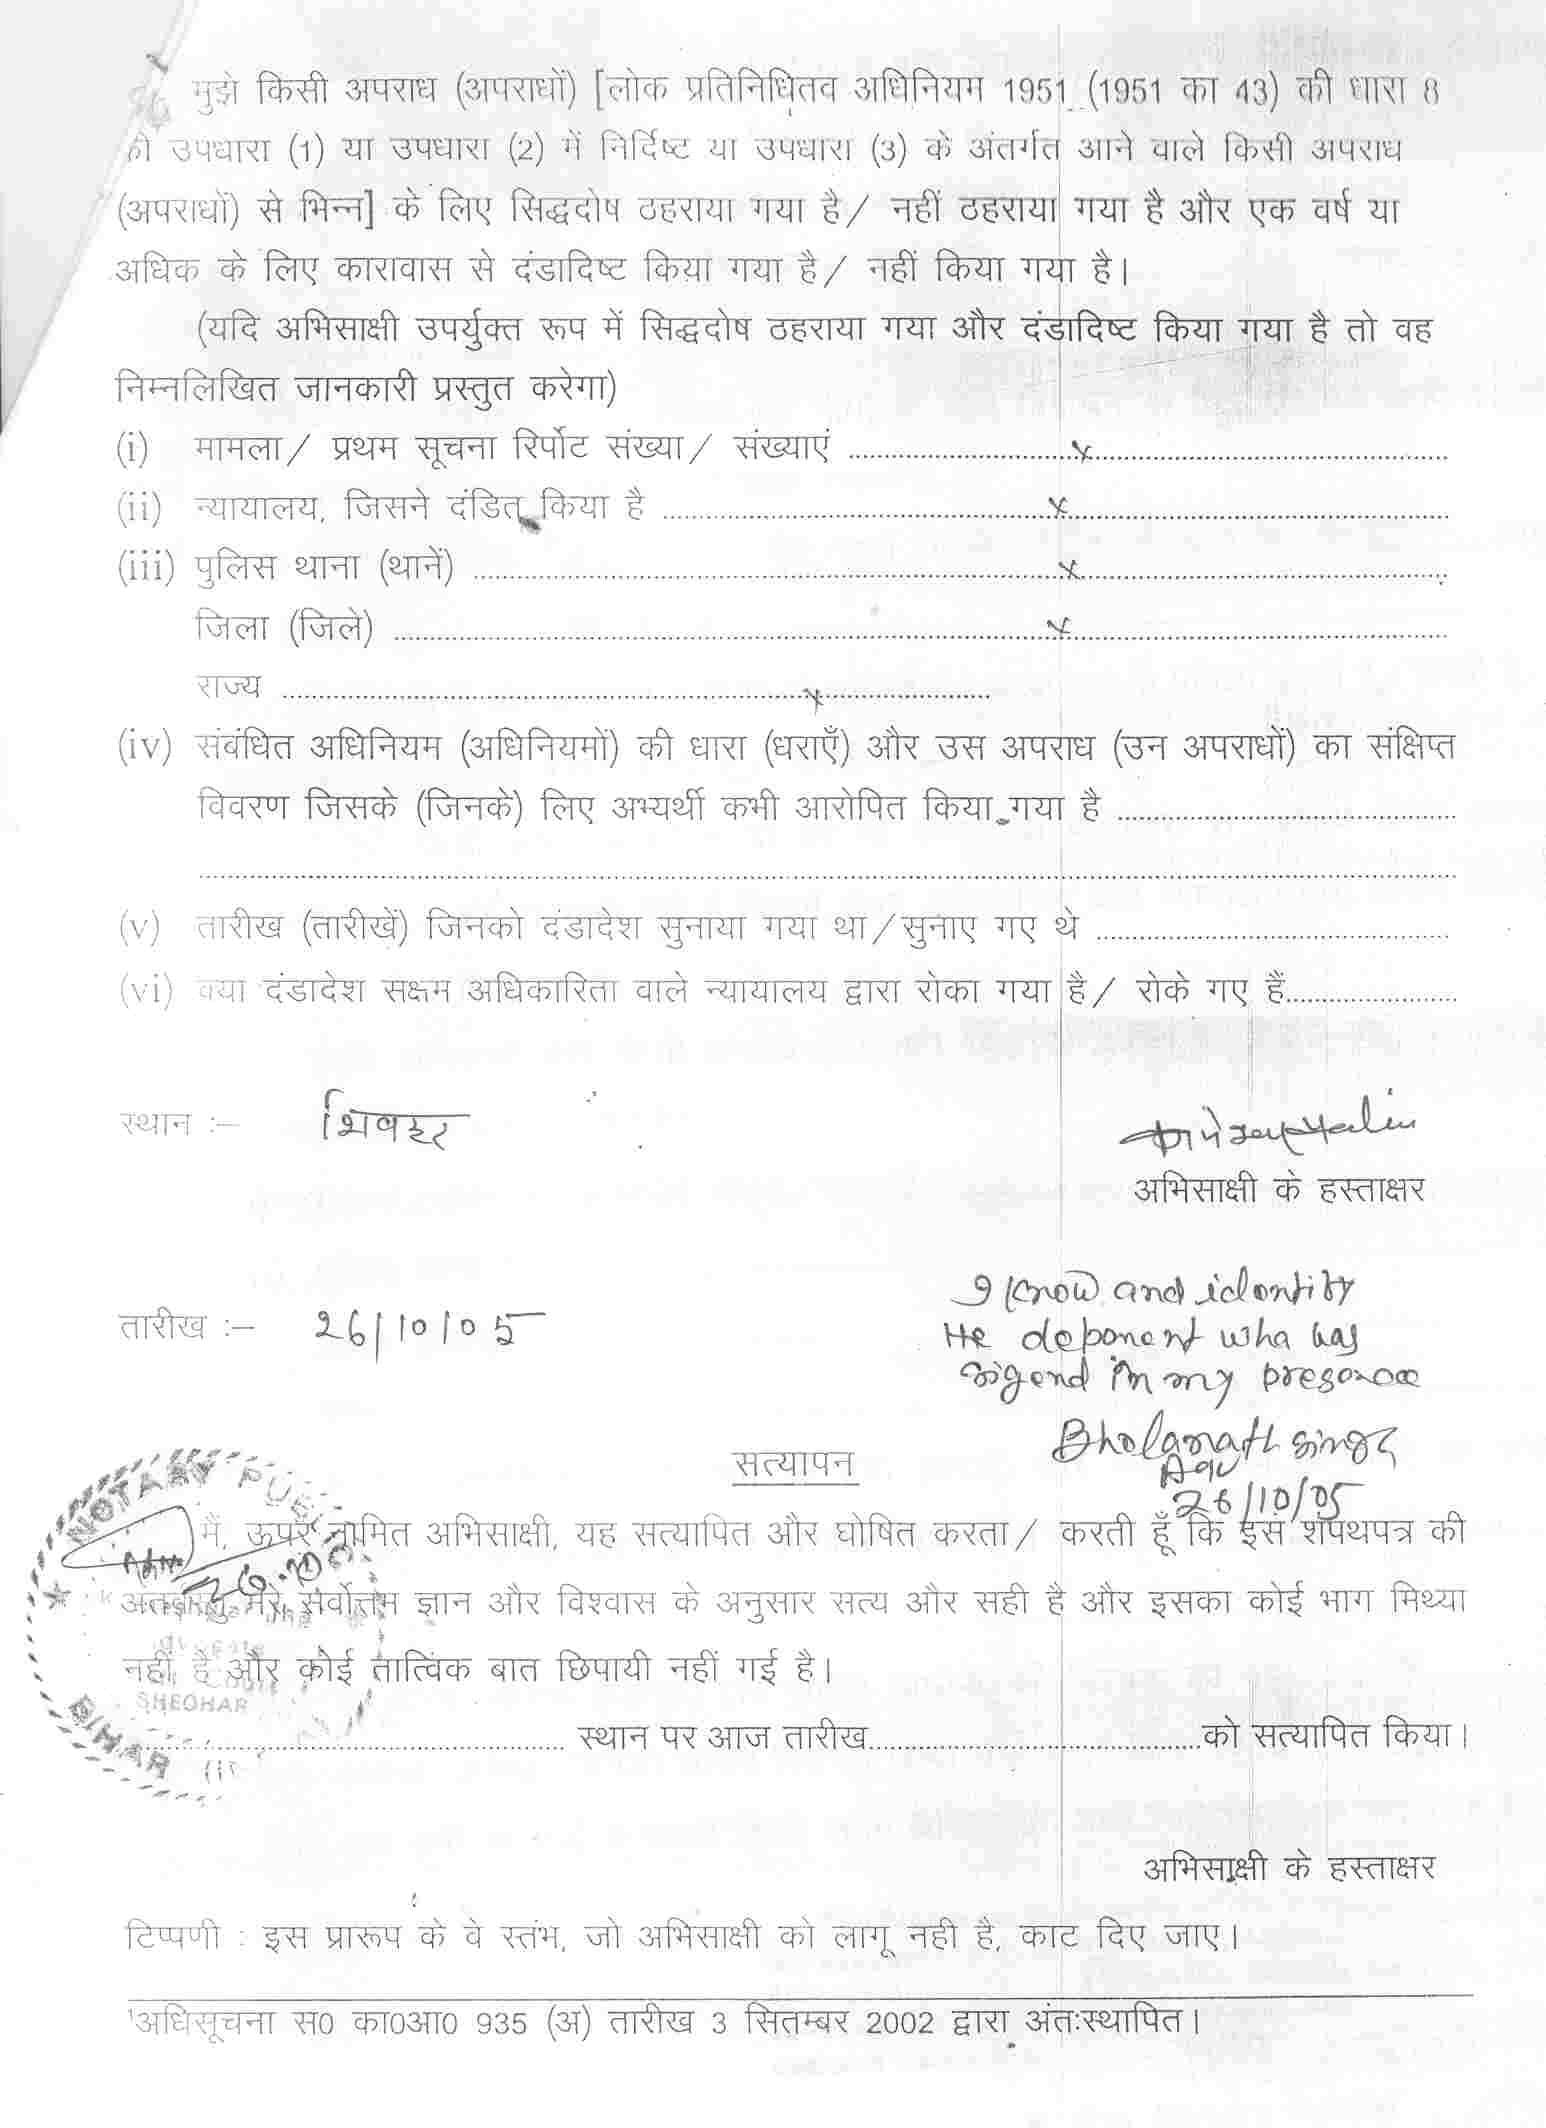 मुझे किसी अपराध (अपराधों) [लोक प्रतिनिधितव अधिनियम 1951 (1951 का 43) की धारा 8
की उपधारा (1) या उपधारा (2) में निर्दिष्ट या उपधारा (3) के अंतर्गत आने वाले किसी अपराध
(अपराधों) से भिन्न] के लिए सिद्धदोष ठहराया गया है/ नहीं ठहराया गया है और एक वर्ष या
अधिक के लिए कारावास से दंडादिष्ट किया गया है/ नहीं किया गया है।
(यदि अभिसाक्षी उपर्युक्त रूप में सिद्धदोष ठहराया गया और दंडादिष्ट किया गया है तो वह
निम्नलिखित जानकारी प्रस्तुत करेगा)
(i) मामला/ प्रथम सूचना रिर्पोट संख्या/ संख्याएं ........ x ........
(ii) न्यायालय, जिसने दंडित किया है ........ x ........
(iii) पुलिस थाना (थानें) ........ x ........
जिला (जिले) ........ x ........
राज्य ........ x ........
(iv) संबंधित अधिनियम (अधिनियमों) की धारा (धराएँ) और उस अपराध (उन अपराधों) का संक्षिप्त
विवरण जिसके (जिनके) लिए अभ्यर्थी कभी आरोपित किया गया है ........
(v) तारीख (तारीखें) जिनको दंडादेश सुनाया गया था/सुनाए गए थे ........
(vi) क्या दंडादेश सक्षम अधिकारिता वाले न्यायालय द्वारा रोका गया है/ रोके गए हैं........
स्थान :- शिवहर
अभिसाक्षी के हस्ताक्षर
I know and identity
He deponent who has
तारीख :- 26/10/05
sigend in my presence
Bholanath Singh
Adv
26/10/05
सत्यापन
NOTARY PUB
मैं, ऊपर नामित अभिसाक्षी, यह सत्यापित और घोषित करता/ करती हूँ कि इस शपथपत्र की
अंतर्वस्तु मेरे सर्वोत्तम ज्ञान और विश्वास के अनुसार सत्य और सही है और इसका कोई भाग मिथ्या
नहीं है और कोई तात्विक बात छिपायी नहीं गई है।
SHEOHAR
BIHAR
........ स्थान पर आज तारीख........को सत्यापित किया।
अभिसाक्षी के हस्ताक्षर
टिप्पणी : इस प्रारूप के वे स्तंभ, जो अभिसाक्षी को लागू नही है, काट दिए जाए।
¹अधिसूचना स0 का0आ0 935 (अ) तारीख 3 सितम्बर 2002 द्वारा अंतःस्थापित।